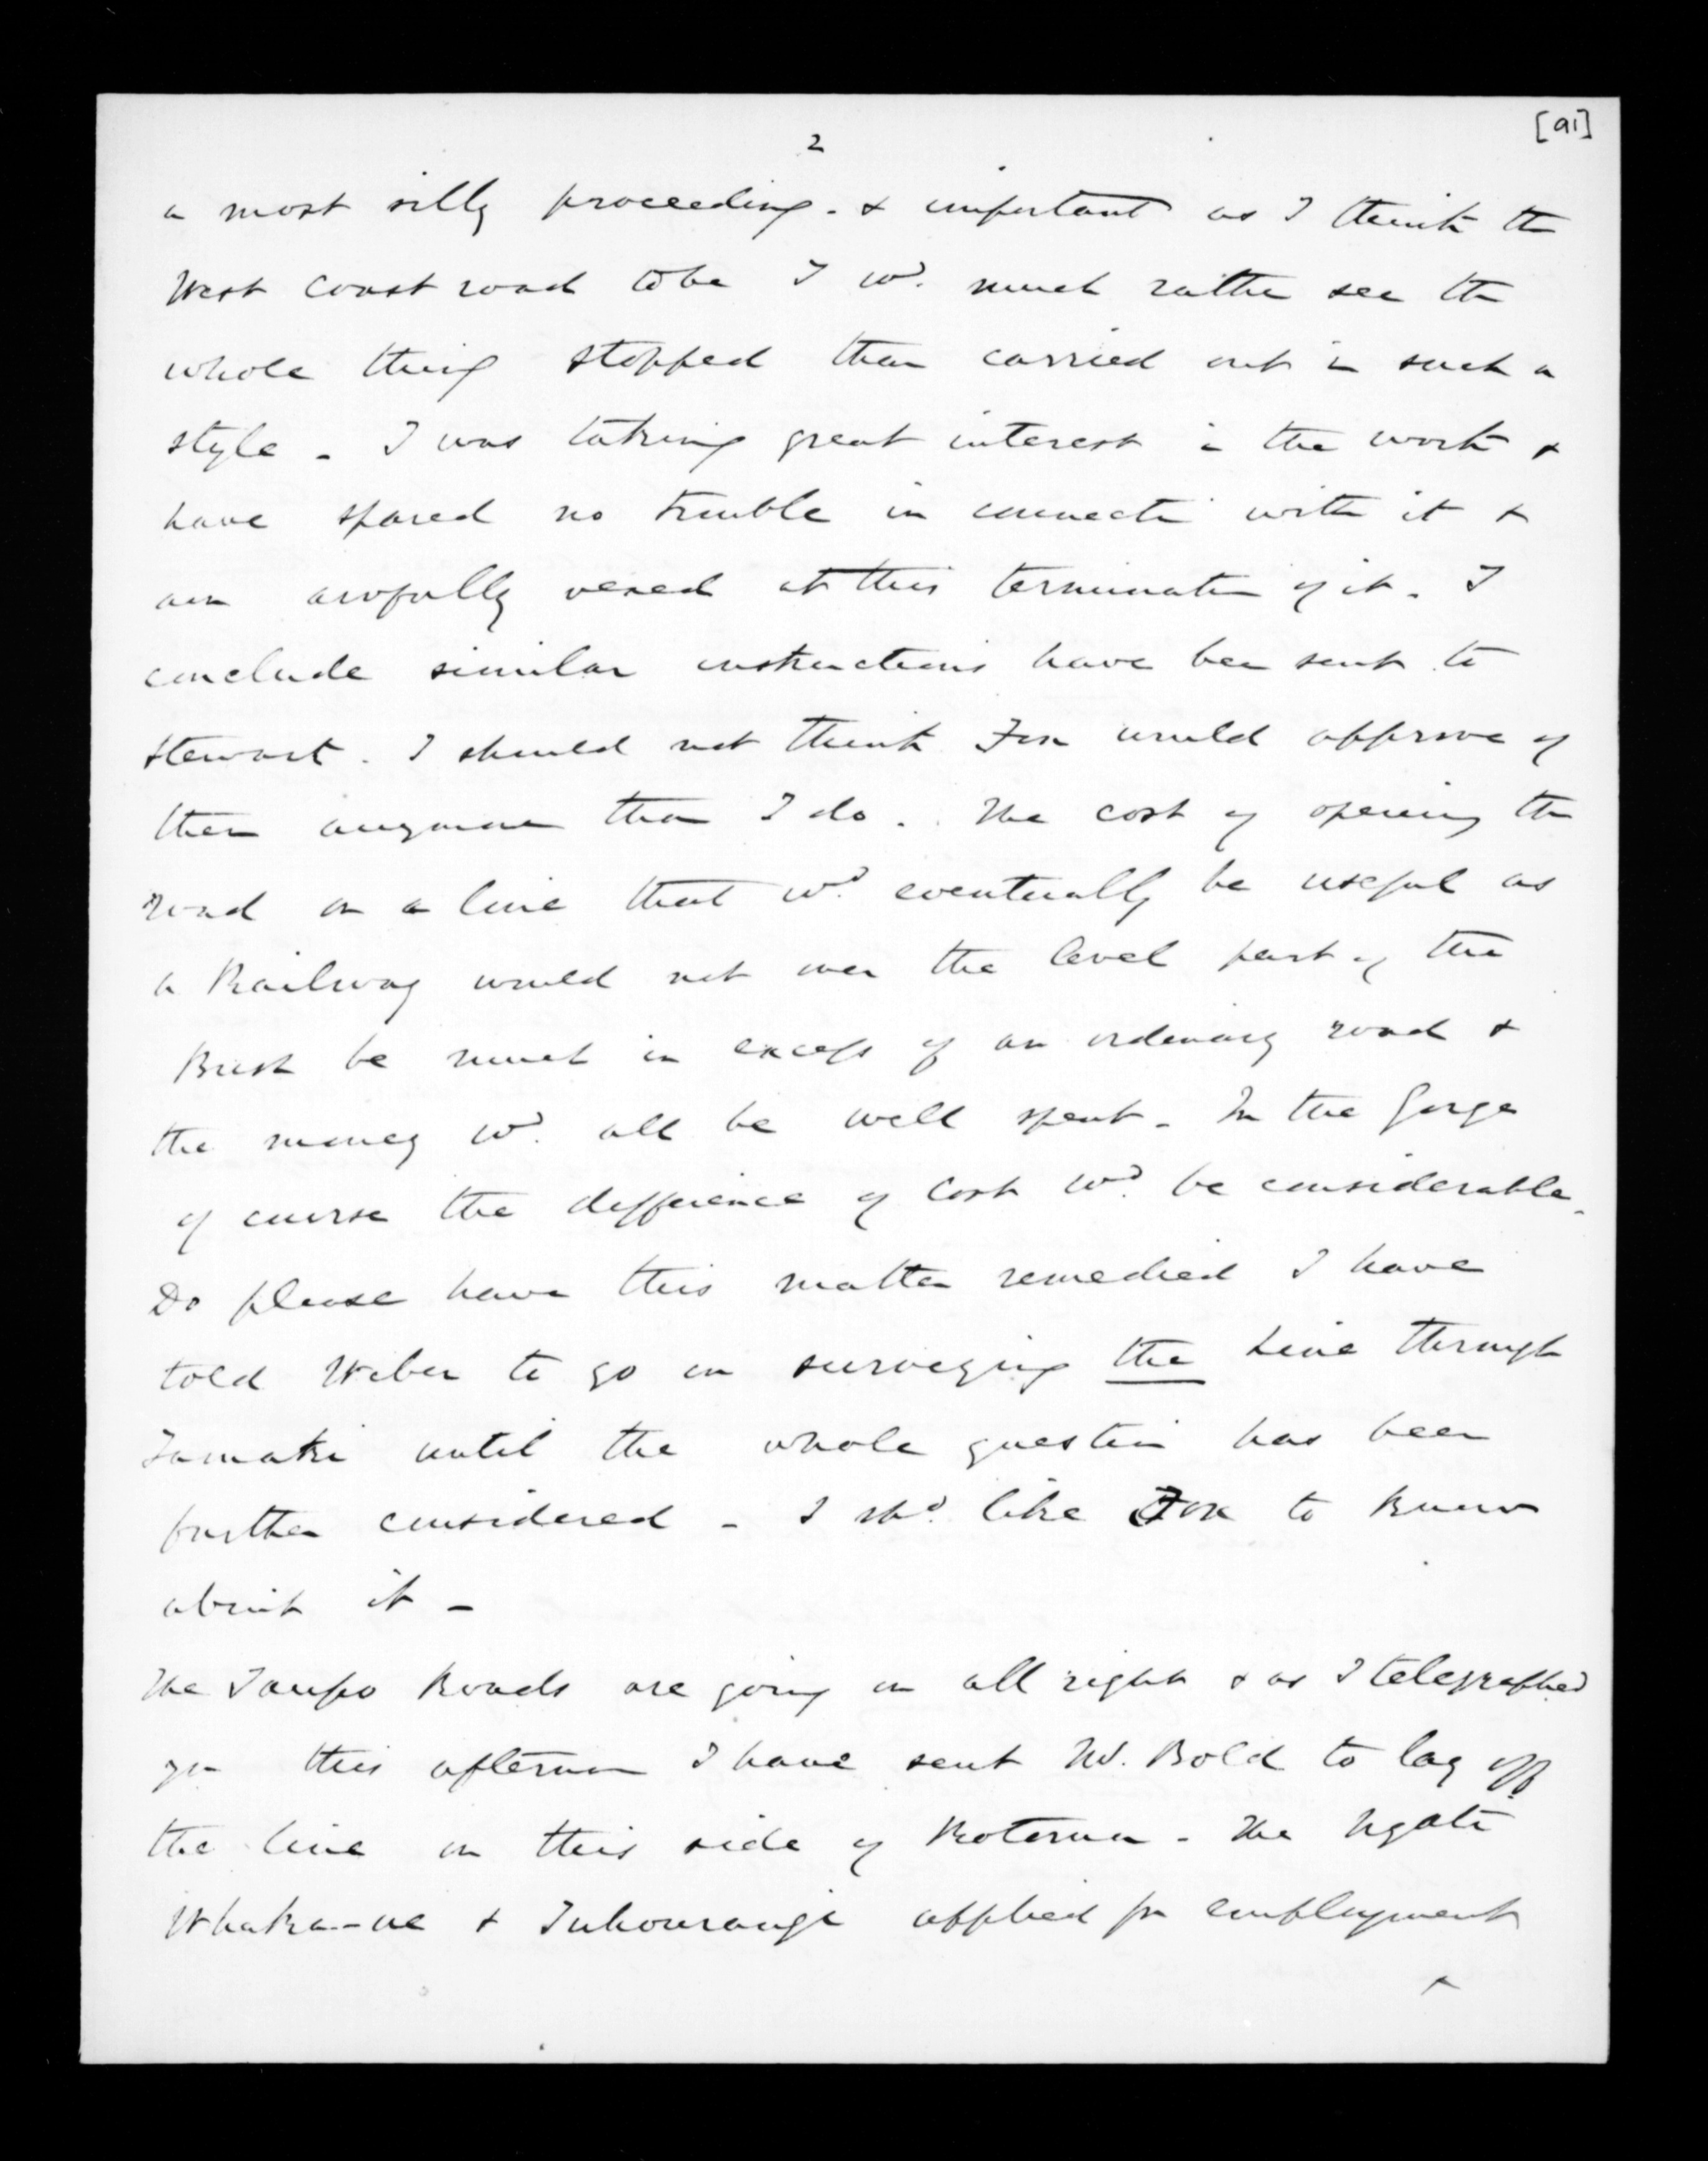 [91]
2
a most silly proceeding. & important as I think the
West Coast road to be I wd. much rather see the
whole thing stopped than carried out in such a
style - I was taking great interest in the work &
have spared no trouble in connecti with it &
am awfully vexed at this termination of it. I
conclude similar instructions have been sent to
Stewart. I should not think Fox would approve of
them anymore than I do. The cost of opening the
road on a line that wd. eventually be useful as
a Railway would not over the level part of the
Bush be much in excess of an ordinary road &
the money wd. all be well spent - In the Gorge
of course the difference of cost wd. be considerable.
Do please have this matter remedied I have
told Weber to go on surveying the Line through
Tamaki until the whole question has been
further considered - I shd. like Fox to know
about it -
The Taupo Roads are going on all right & as I telegraphed
you this afternoon I have sent Mr. Bold to lay off
the line on this side of Rotorua - The Ngati
Whaka-ue & Tuhourangi applied for employment